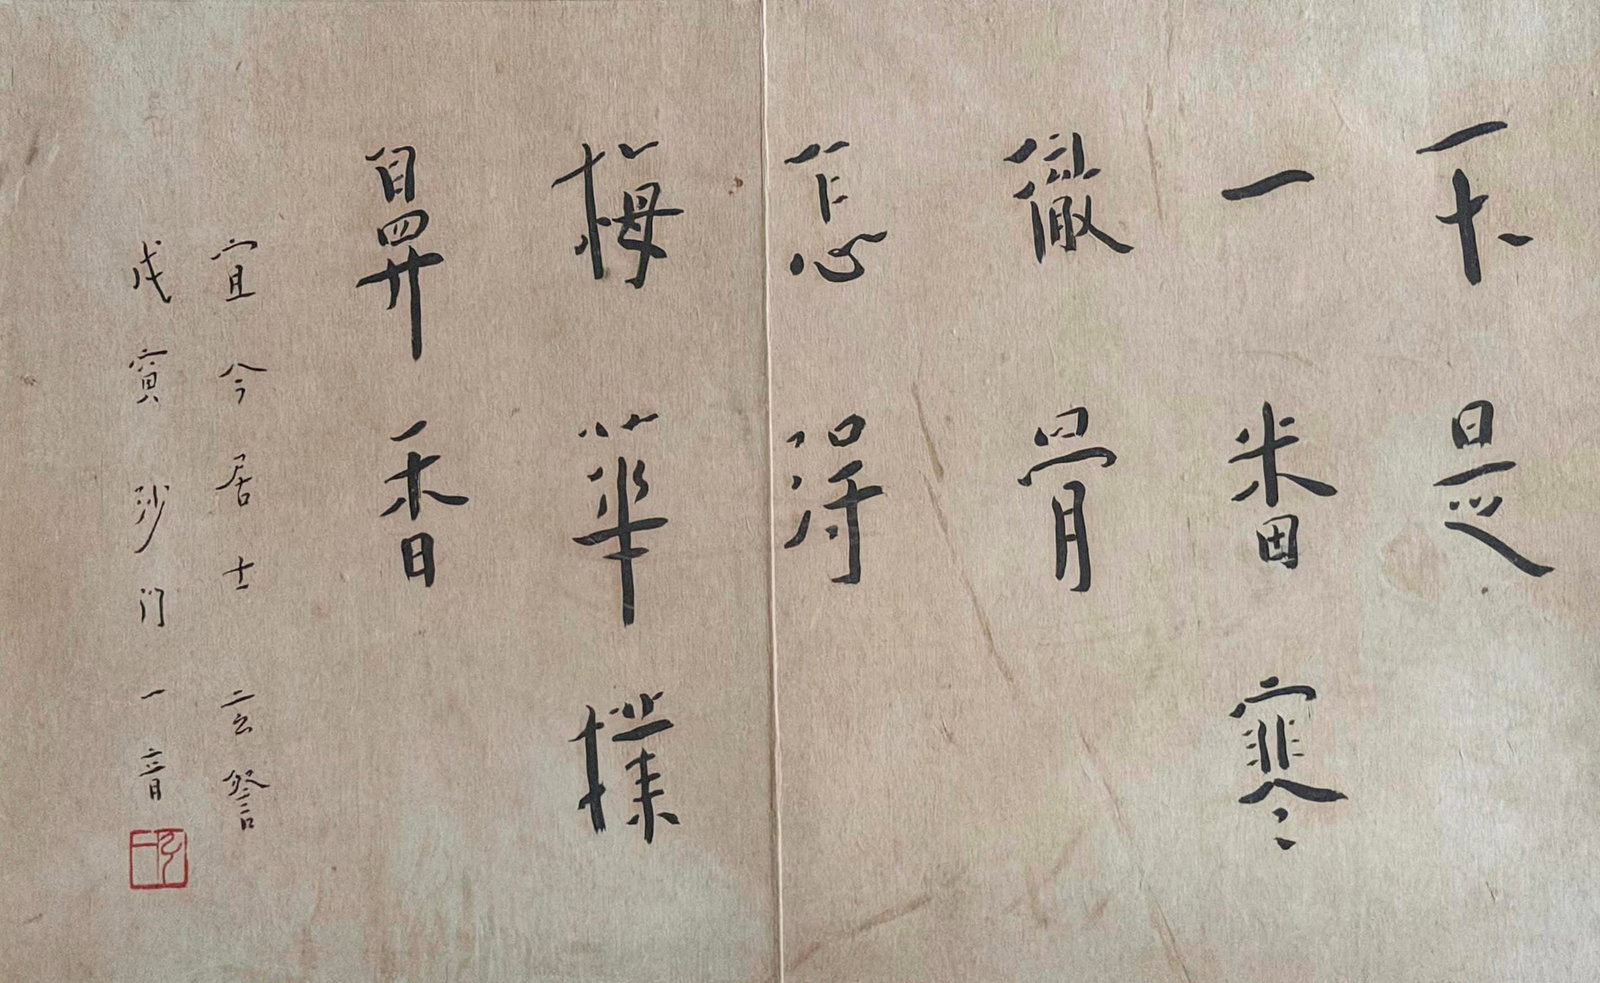 不是
一番寒
徹骨
怎得
梅華撲
鼻香
宜今居士 玄詧
戊寅沙门一音